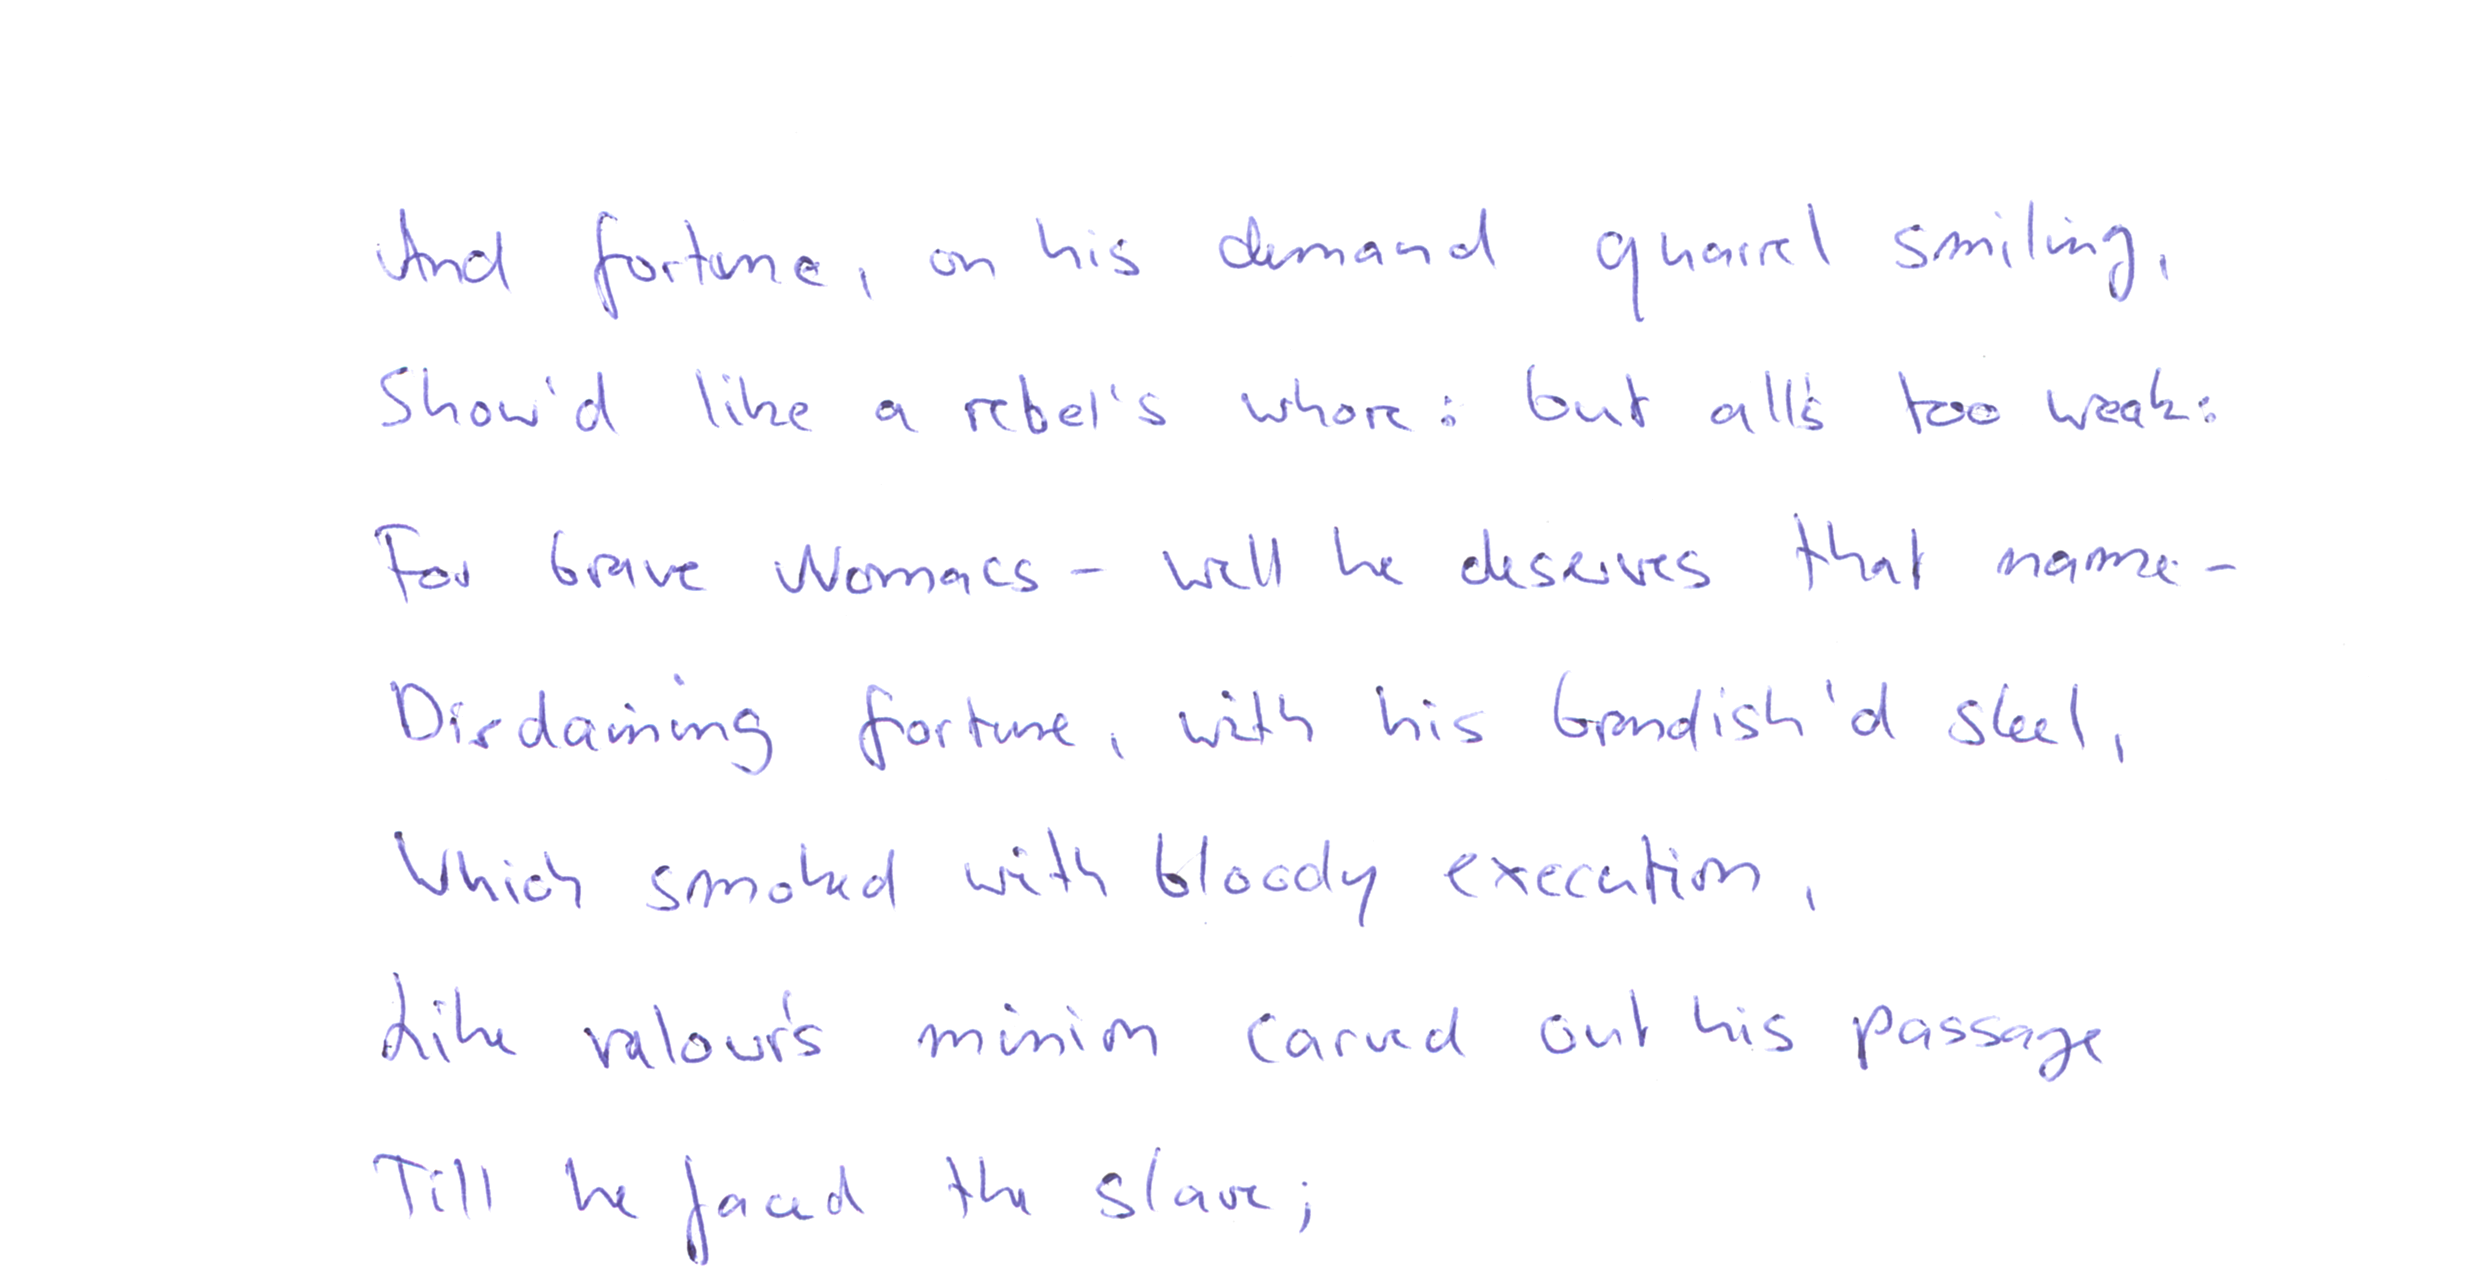 And fortune, on his demand quarrel smiling,
Show'd like a rebel's whore: but all's too weak:
For brave Womacs - well he deserves that name -
Disdaining fortune, with his brandish'd steel,
Which smoked with bloody execution,
Like valour's minion carved out his passage
Till he faced the slave;